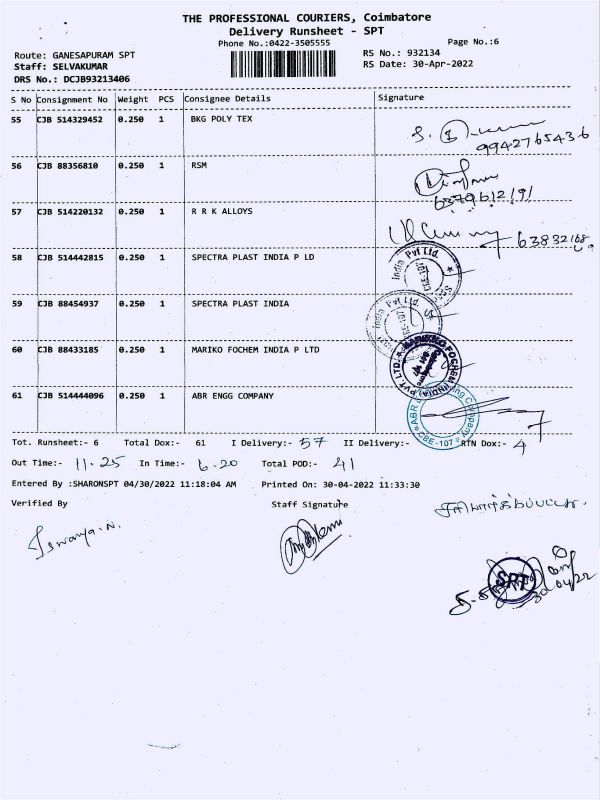 THE PROFESSIONAL COURIERS, Coimbatore
Delivery Runsheet - SPT
Phone No.:0422-3505555
Page No.:6
Route: GANESAPURAM SPT
RS No.: 932134
Staff: SELVAKUMAR
RS Date: 30-Apr-2022
DRS No.: DCJB93213406
S No Consignment No Weight PCS Consignee Details Signature
55 CJB 514329452 0.250 1 BKG POLY TEX
9942765436
56 CJB 88356810 0.250 1 RSM
6379612191
57 CJB 514220132 0.250 1 R R K ALLOYS
63832168
58 CJB 514442815 0.250 1 SPECTRA PLAST INDIA P LD
India Pvt Ltd.
59 CJB 88454937 0.250 1 SPECTRA PLAST INDIA
India Pvt Ltd.
60 CJB 88433185 0.250 1 MARIKO FOCHEM INDIA P LTD
MARIKO FOCHEM (INDIA) PVT. LTD.
61 CJB 514444096 0.250 1 ABR ENGG COMPANY
ABR Company CBE-107
Tot. Runsheet:- 6 Total Dox:- 61 I Delivery:- 57 II Delivery:- RTN Dox:- 4
Out Time:- 11.25 In Time:- 6.20 Total POD:- 41
Entered By :SHARONSPT 04/30/2022 11:18:04 AM Printed On: 30-04-2022 11:33:30
Verified By Staff Signature
சரிபார்க்கப்பட்டது.
SPT
30/04/22